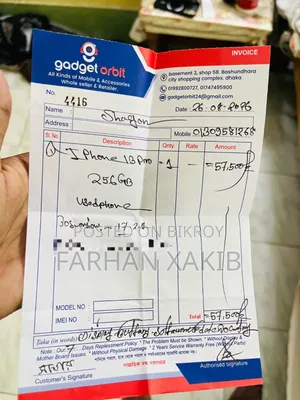 gadget orbit
All Kinds of Mobile & Accessories
Whole seller & Retailer.
INVOICE
basement 2, shop 58, Bashundhara
city shopping complex, dhaka
01992800727, 01747495900
gadgetorbit24@gmail.com
No. 4416
Date
Name
Address
Mobile
Sl. No Description Qnty. Rate Amount
I Phone 13 Pro - 1 - =57,500/=
256GB
Usedphone
POSTED ON BIKROY
FARHAN XAKIB
MODEL NO
IMEI NO
Total =57,500/=
Taka (in words)
Note: Our 7 Days Replessment Policy. * The Problem Must be Shown. * Without Display &
Mother Board Issues * Without Physical Damage * 2 Years Service Warranty (Free Without Parts)
Customer's Signature
Authorised signature